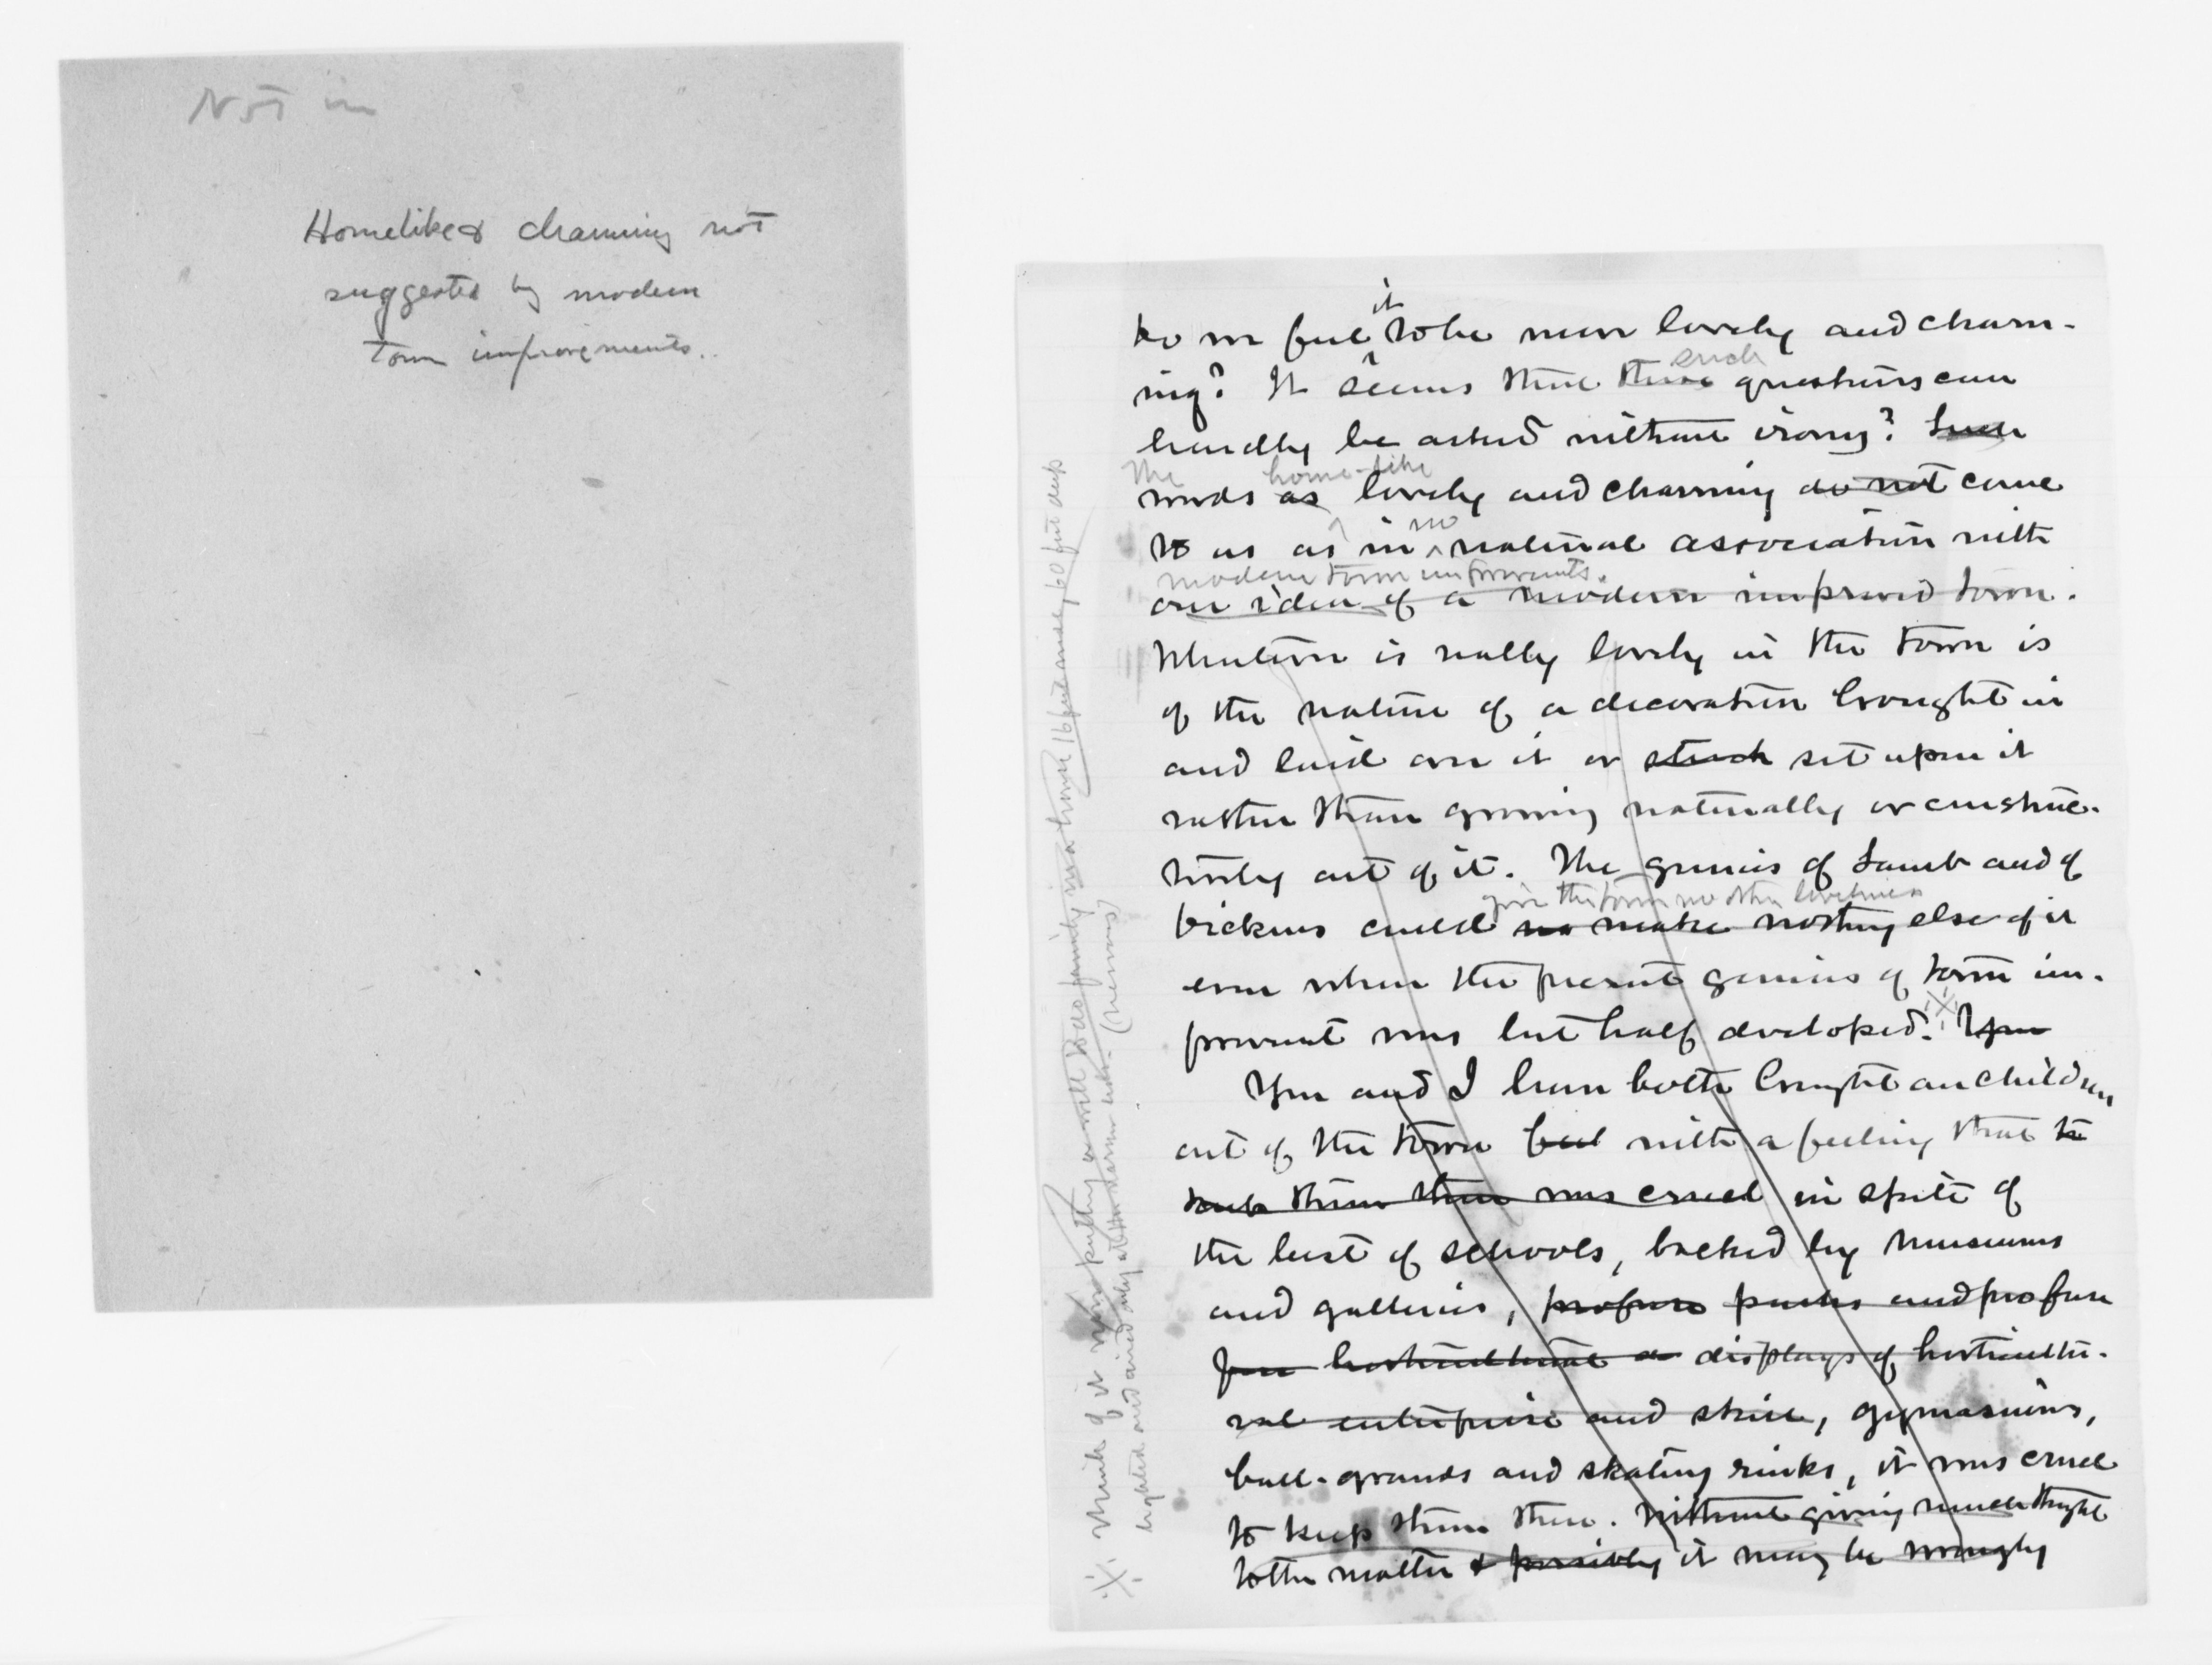 Not in
Homelike & charming not
suggested by modern
town improvements.
it
to us feel to be more lovely and charm-
such
ing? It seems that these questions can
hardly be asked without irony? Such
The home-like
words as lovely and charming do not come
no
to us as in natural association with
modern town improvements.
our idea of a modern improved town.
Whatever is really lovely in the town is
of the nature of a decoration brought in
and laid over it or stuck set upon it
rather than growing naturally or construc-
tively out of it. The genius of Lamb and of
give the town no other loveliness
Dickens could no make nothing else of it
even when the present genius of town im-
provement was but half developed. You
You and I have both brought our children
out of the town but with a feeling that to
keep them there was cruel in spite of
the best of schools, backed by museums
and galleries, profuse parks and profuse
horticultural displays of horticultu-
ral enterprise and skill, gymnasiums,
ball-grounds and skating rinks, it was cruel
to keep them there. Without giving much thought
to the matter & possibly it may be wrongly
※ Think of it sympathy a well to do family in a house 16 feet wide, 60 feet deep
lighted and aired only at the narrow ends.